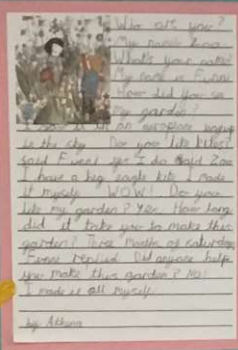 Who are you?
My name is Zona.
What's your name?
My name is Fwni.
How did you
my garden?
I in an aeroplane
in the sky. Do you like kites?
said Fwni yes I do said Zona
I have a big eagle kite I made
it myself. WOW! Do you
like my garden? Yes. How long
did it take you to make this
garden? Three months of saturdays
replied. Did anyone help
you make this garden? No!
I made it all myself.
by Athena